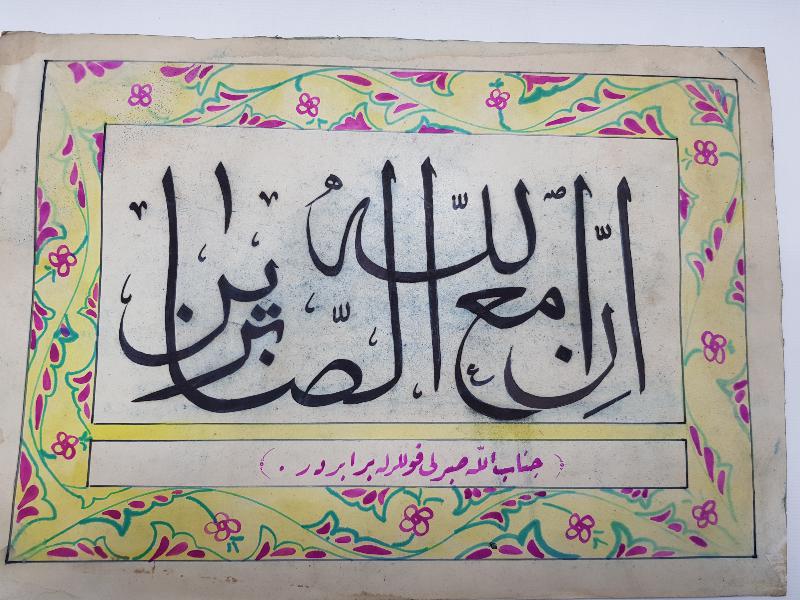 اِنَّ اللّٰه مع الصّابرين
﴿ جناب اللّٰه صبرلی قوللرله برابردر . ﴾